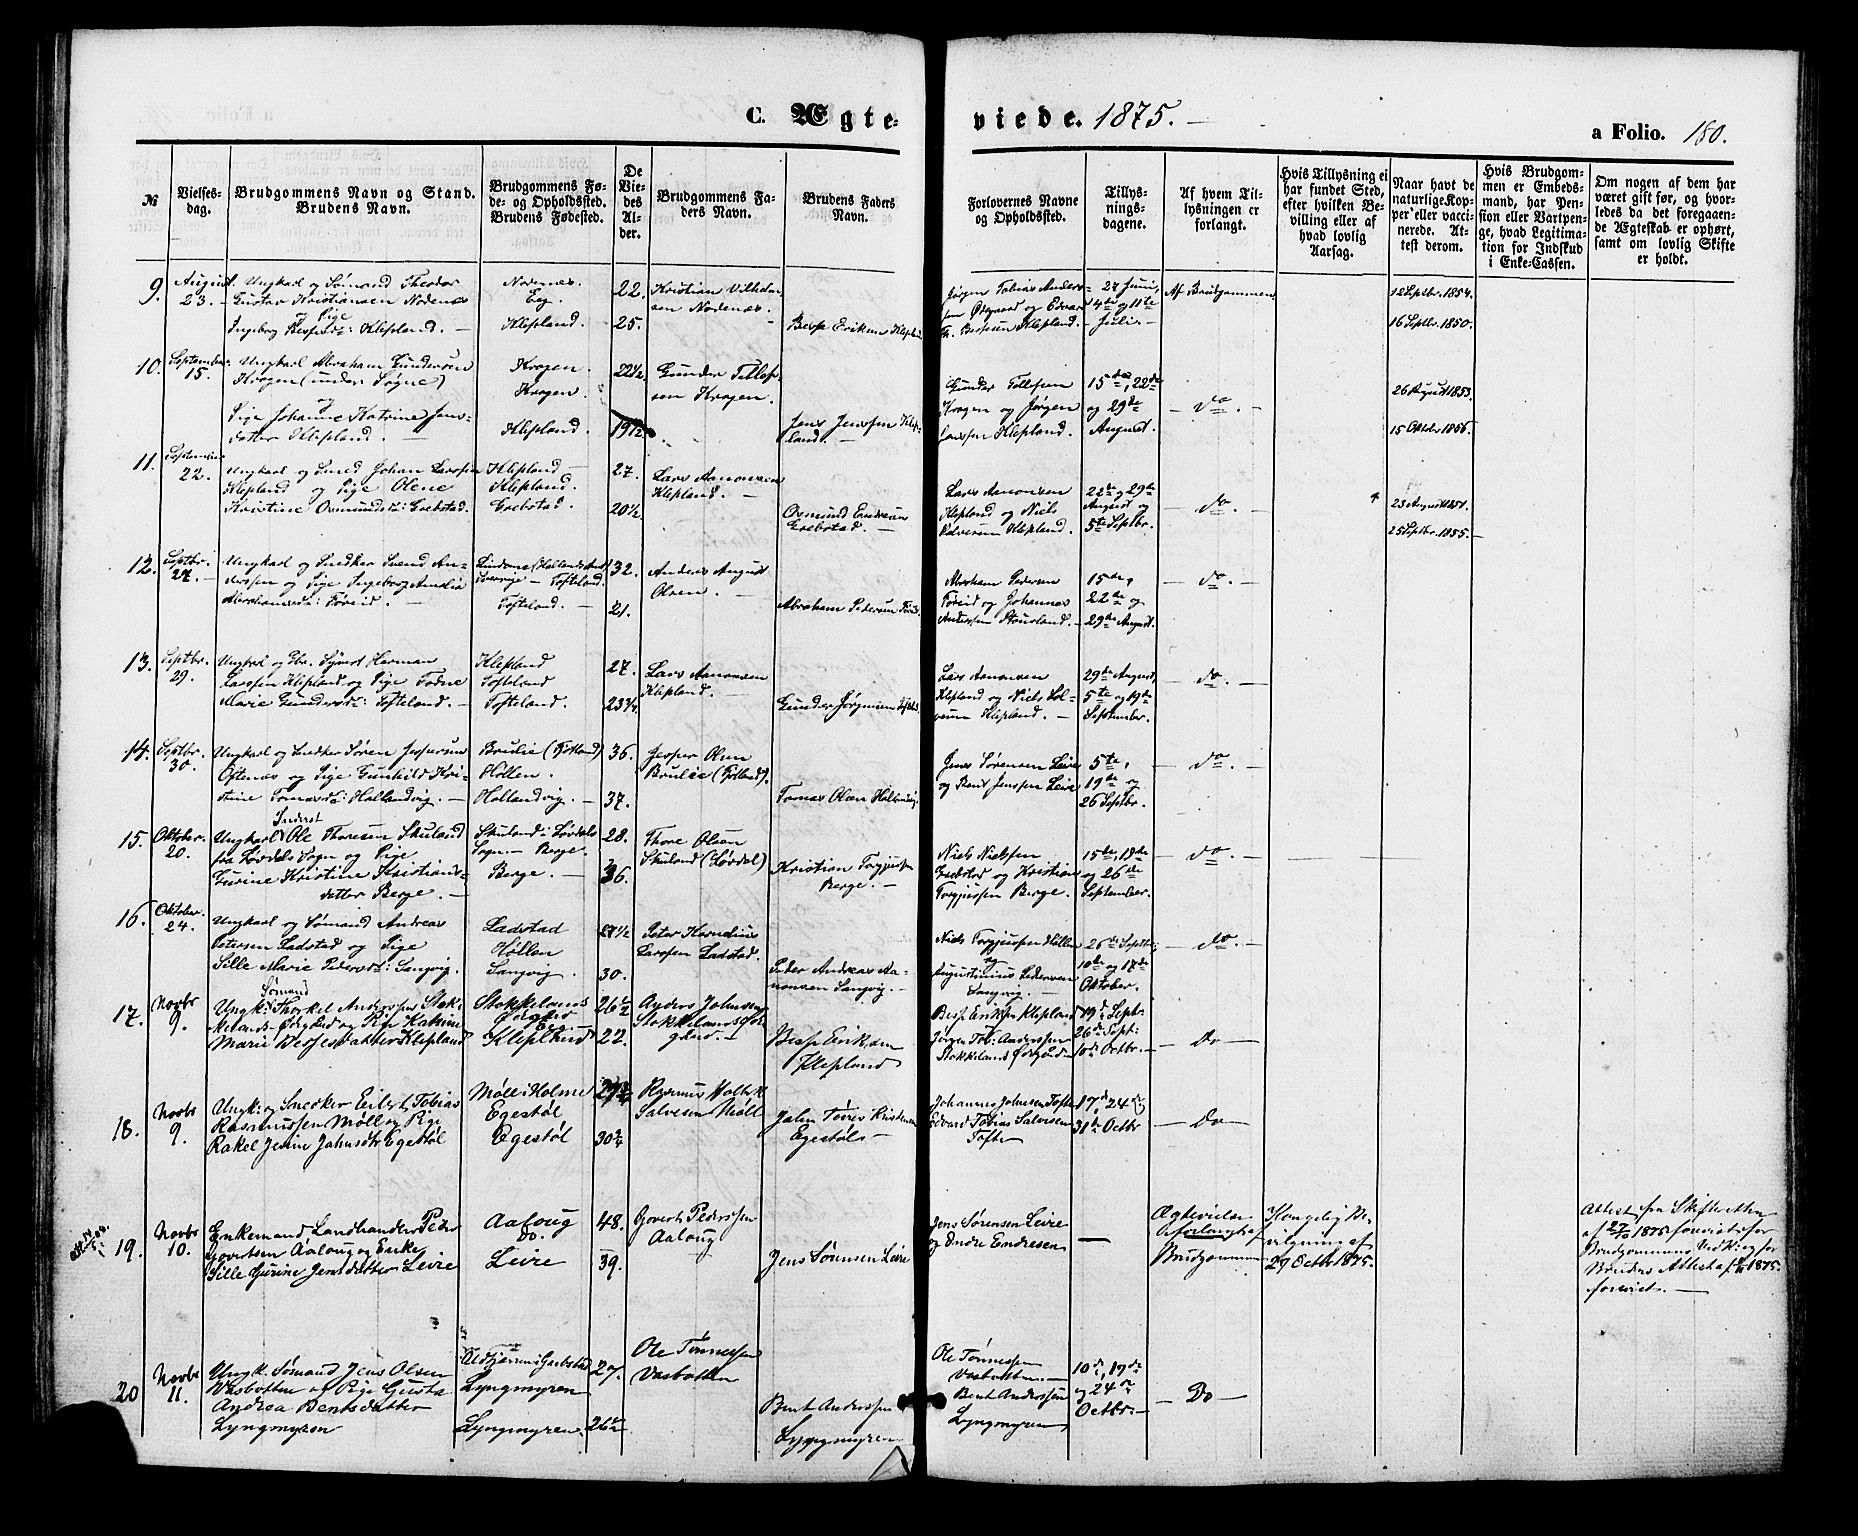 C. Ægte-
viede. 1875.
a Folio. 180.
№
Vielses-
dag.
Brudgommens Navn og Stand.
Brudens Navn.
Brudgommens Fø-
de- og Opholdssted.
Brudens Fødested.
De
Vie-
des
Al-
der.
Brudgommens Fa-
ders Navn.
Brudens Faders
Navn.
Forlovernes Navne
og Opholdssted.
Tillys-
nings-
dagene.
Af hvem Til-
lysningen er
forlangt.
Hvis Tillysning ei
har fundet Sted,
efter hvilken Be-
villing eller af
hvad lovlig
Aarsag.
Naar havt de
naturlige Kop-
per eller vacci-
nerede. At-
test derom.
Hvis Brudgom-
men er Embeds-
mand, har Pen-
sion eller Vartpen-
ge, hvad Legitima-
tion for Indskud
i Enke-Cassen.
Om nogen af dem har
været gift før, og hvor-
ledes da det foregaaen-
de Ægteskab er ophørt,
samt om lovlig Skifte
er holdt.
9.
August
23.
Ungkarl og Sømand Theodor
Gustav Kristiansen Nodenæs
og Pige
Ingeborg Klepland.
Nodenæs.
Eg.
Klepland.
22.
25.
Kristian Vilhelm-
sen Nodenæs
Berse Eriksen
Jørgen Tobias Anders-
sen og Edvard
Klepland.
27 Juni,
4de og 11te
Juli.
Af Brudgommen
12 Septbr. 1854.
16 Septbr. 1850.
10.
September
15.
Ungkarl Abraham Gundersen
Kragen (under Søgne)
og
Pige Johanne Katrine Jens-
datter Klepland.
Kragen.
Kragen.
Klepland.
22½
19½
Gunder Tellef-
sen Kragen.
Jens Jenssen Klep-
land
Gunder Tellfsen
Kragen og Jørgen
Jenssen Klepland.
15de, 22de
og 29de
August.
do.
26 August 1853.
15 Oktbr 1856.
11.
September
22.
Ungkarl og Smed Johan Larssen
Klepland og Pige Olene
Kristine Osmundsdr: Grebstad.
Klepland
Klepland.
Grebstad.
27.
20½
Lars Aanonsen
Klepland.
Osmund Endresen
Grebstad.
Lars Aanonsen
Klepland og Niels
Klepland.
22de og 29de
August og
5te Septbr.
do.
23 August 1851.
25 Septbr. 1855.
12.
Septbr.
27.
Ungkarl og Snedker Svend An-
derssen og Pige Ingeborg Amalia
Abrahamsdr: Føreid.
Tofteland.
Tofteland.
32.
21.
Anders August
Olsen.
Abraham Pedersen
Abraham Pedersen
Føreid og Johannes
Anderssen
15de,
22de og
29de August.
do.
13.
Septbr.
29.
Ungkarl og Syvert Herman
Larssen Klepland og Pige
Marie Gundersdr: Tofteland.
Klepland
Tofteland
Tofteland.
27.
23¾
Lars Aanonsen
Klepland.
Gunder Jørgensen
Lars Aanonsen
Klepland og Niels Hal-
Klepland.
29de August,
5te og 19de
September.
do.
14.
Septbr.
30.
Ungkarl og Snedker Søren Jespersen
Oftenæs og Pige Gunhild Kri-
stine Tomasdr: Hollandvig.
Brulie (Fjotland)
Høllen.
Hollandvig.
36.
37.
Jesper Olsen
Brulie (Fjotland).
Tomas Olsen
Jens Sørensen Leire
og Bent Jenssen Leire
5te,
19de og
26 Septbr.
do.
15.
Oktober
20.
Ungkarl Ole Thoresen Skuland
fra Løvdals Sogn og Pige
Gurine Kristine Kristians-
datter Berge.
Skuland i Løvdals
Sogn. Berge.
Berge.
28.
36.
Thore Olsen
Skuland (Løvdal)
Kristian Torgjussen
Berge.
Niels Nielssen
og Kristian
Torgjussen Berge.
15de, 19de
og 26de
September.
do.
16.
Oktober.
24.
Ungkarl og Sømand Andreas
Petersen Ladstad og Pige
Sille Marie Pedersdr: Langvig.
Ladstad
Høllen
Langvig.
27½
30.
Peter Kornelius
Larssen Ladstad.
Peder Andreas Aa-
nonsen Langvig.
Niels Torgjussen Høllen
og
Augustinius Pedersen
Langvig
26de Septbr:
10de og 17de
Oktober.
do.
17.
Novbr
9.
Sømand
Ungk: Thorkel Anderssen Stok-
kelands-Ørgld og Pige Katrine
Marie Bersesdatter Klepland
Stokkelands
Klepland
26
22.
Anders Johnsen
Stokkelands
Berse Eriksen
Klepland
Berse Eriksen Klepland
Jørgen Tob: Anderssen
Stokkelands
19de Sept:
26de Sept:
10de Octbr.
Do
18.
Novbr
9.
Ungk: og Snedker Eilert Tobias
Rasmussen Møll og Pige
Rakel Jesine Jahnsdtr Egestøl
Møll i Holme
Egestøl
Egestøl
30
Rasmus
Salvesen Møll
Egestøl
Johannes Johnsen Tofte
Edvard Tobias Salvesen
Tofte
17, 24
31te Octbr
Do
19.
Novbr
10.
Enkemand, Landhandler Peder
Govertsen Aaloug og Enke
Sille Gurine Jensdatter Leire
Aaloug
Do.
Leire
48.
39.
Govert Pederssen
Aaloug
Jens Sørensen Leire
Jens Sørensen Leire
og Endre Endresen
Ægtevielse
forlangt af
Brudgommen
Kongelig Be-
vilgning af
29 Octbr 1875.
Attest fra Skifteretten
af 1875 forevist for
Brudgommens Ved k: og for
Brudens Attest af 1875.
forevist.
20
Novbr
11.
Ungk. Sømand Jens Olsen
Vasbotten og Pige Gusta
Andrea Bentsdatter
Lyngmyren
Lyngmyren
Lyngmyren
27.
26
Ole Tønnessen
Vasbotten
Bent Anderssen
Lyngmyren
Ole Tønnessen
Vasbotten.
Bent Anderssen
Lyngmyren
10de, 17de
og 24de
Octbr.
Do